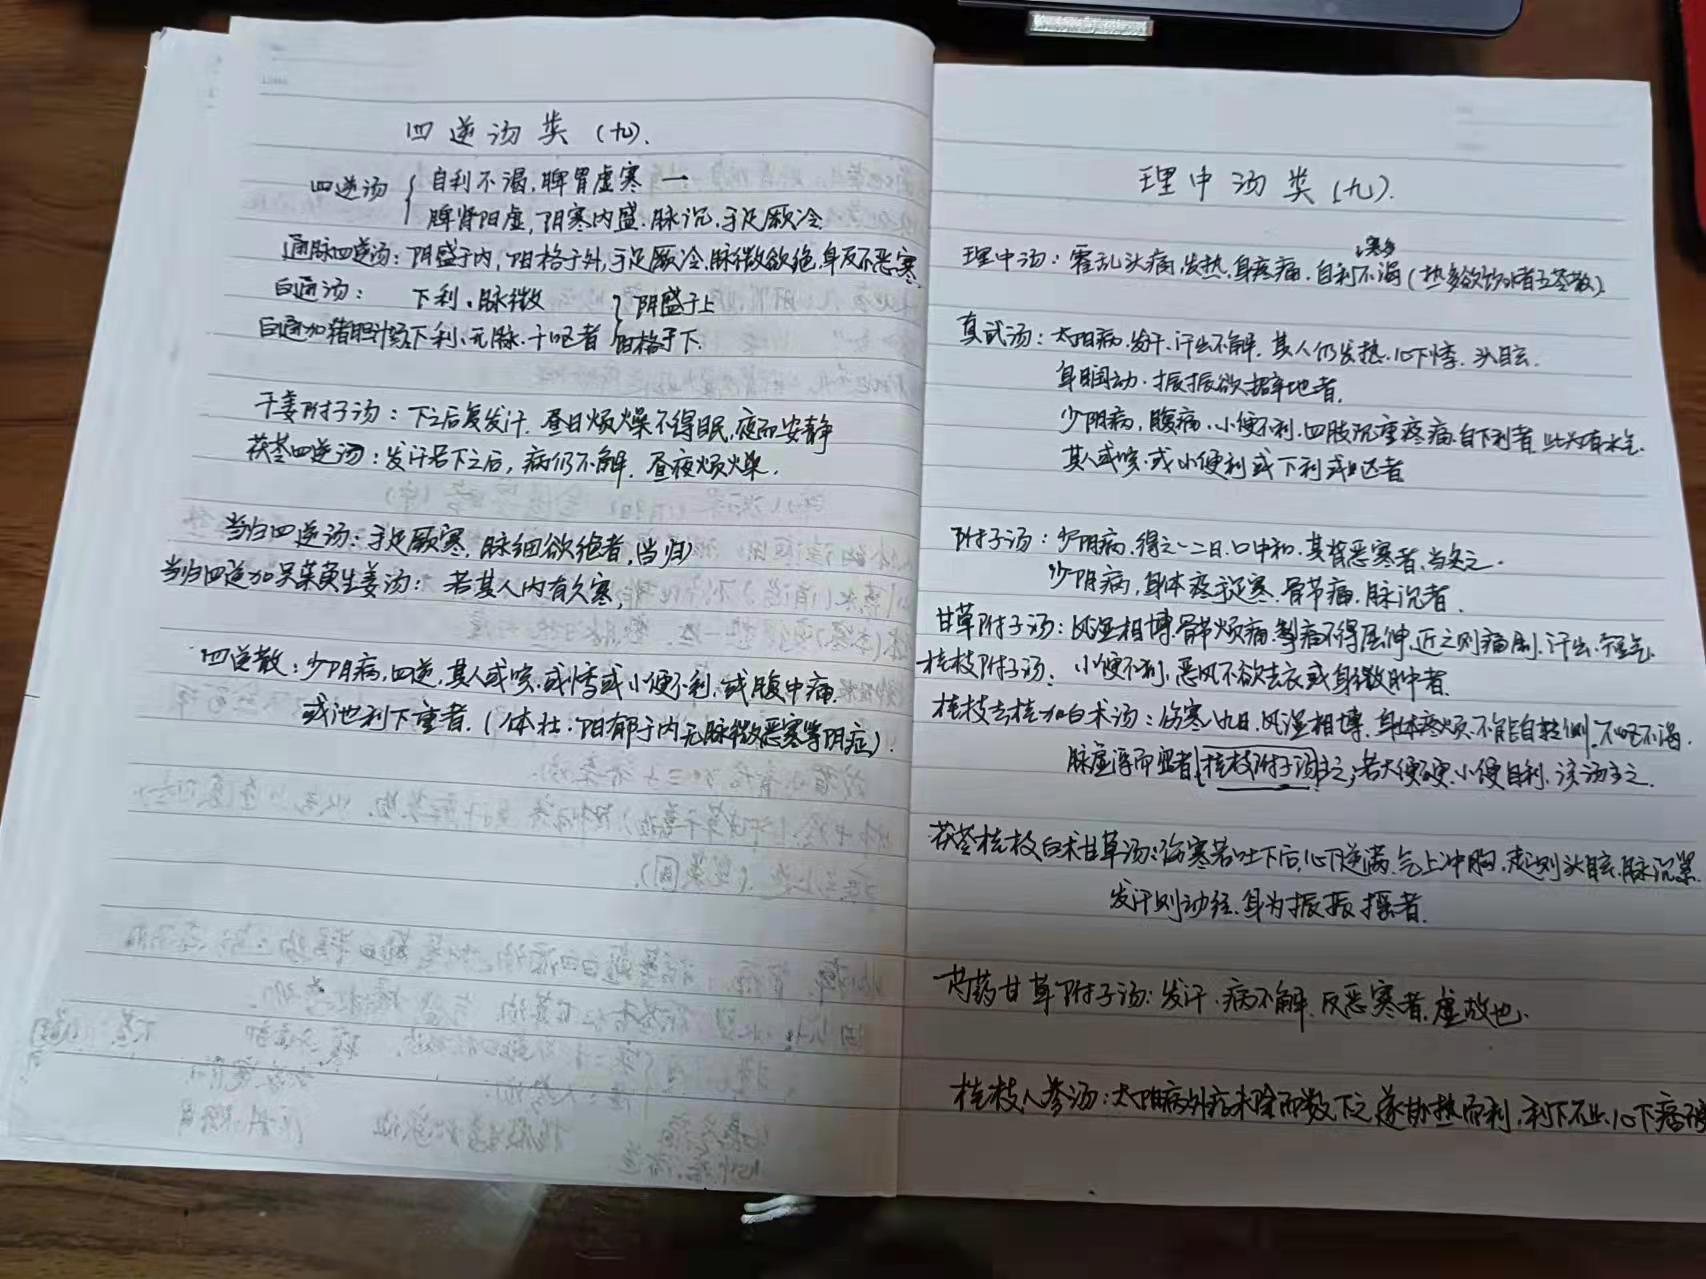 四逆汤类（九）.
四逆汤 { 自利不渴,脾胃虚寒 一
脾肾阳虚,阴寒内盛.脉沉,手足厥冷
通脉四逆汤: 阴盛于内,阳格于外,手足厥冷,脉微欲绝,身反不恶寒.
白通汤: 下利.脉微 } 阴盛于上
白通加猪胆汁汤 下利、无脉.干呕者 阳格于下.
干姜附子汤: 下之后复发汗.昼日烦燥不得眠,夜而安静
茯苓四逆汤: 发汗若下之后,病仍不解.昼夜烦燥.
当归四逆汤: 手足厥寒,脉细欲绝者,(当归)
当归四逆加吴茱萸生姜汤: 若其人内有久寒,
四逆散: 少阴病,四逆,其人或咳.或悸或小便不利.或腹中痛.
或泄利下重者.(体壮.阳郁于内无脉微恶寒等阴症).
理中汤类（九）.
寒多
理中汤: 霍乱头痛,发热,身疼痛.自利不渴(热多欲饮水者五苓散)
真武汤: 太阳病.发汗.汗出不解.其人仍发热.心下悸.头目玄.
身瞤动.振振欲擗地者.
少阴病,腹痛.小便不利.四肢沉重疼痛.自下利者.此为有水气.
其人或咳.或小便利或下利或呕者
附子汤: 少阴病.得之一二日.口中和.其背恶寒者.当灸之.
少阴病,身体疼手足寒.骨节痛.脉沉者.
甘草附子汤: 风湿相博.骨节烦痛.掣痛不得屈伸.近之则痛剧.汗出.短气.
桂枝附子汤: 小便不利,恶风不欲去衣或身微肿者.
桂枝去桂加白术汤: 伤寒八九日.风湿相博.身体疼烦.不能自转侧.不呕不渴.
脉虚浮而涩者桂枝附子汤主之;若大便硬.小便自利.该汤主之.
茯苓桂枝白术甘草汤: 伤寒若吐下后,心下逆满.气上冲胸.起则头目玄.脉沉紧.
发汗则动经.身为振振摇者.
芍药甘草附子汤: 发汗.病不解.反恶寒者.虚故也.
桂枝人参汤: 太阳病外症未除而数下之.遂协热而利.利下不止.心下痞硬